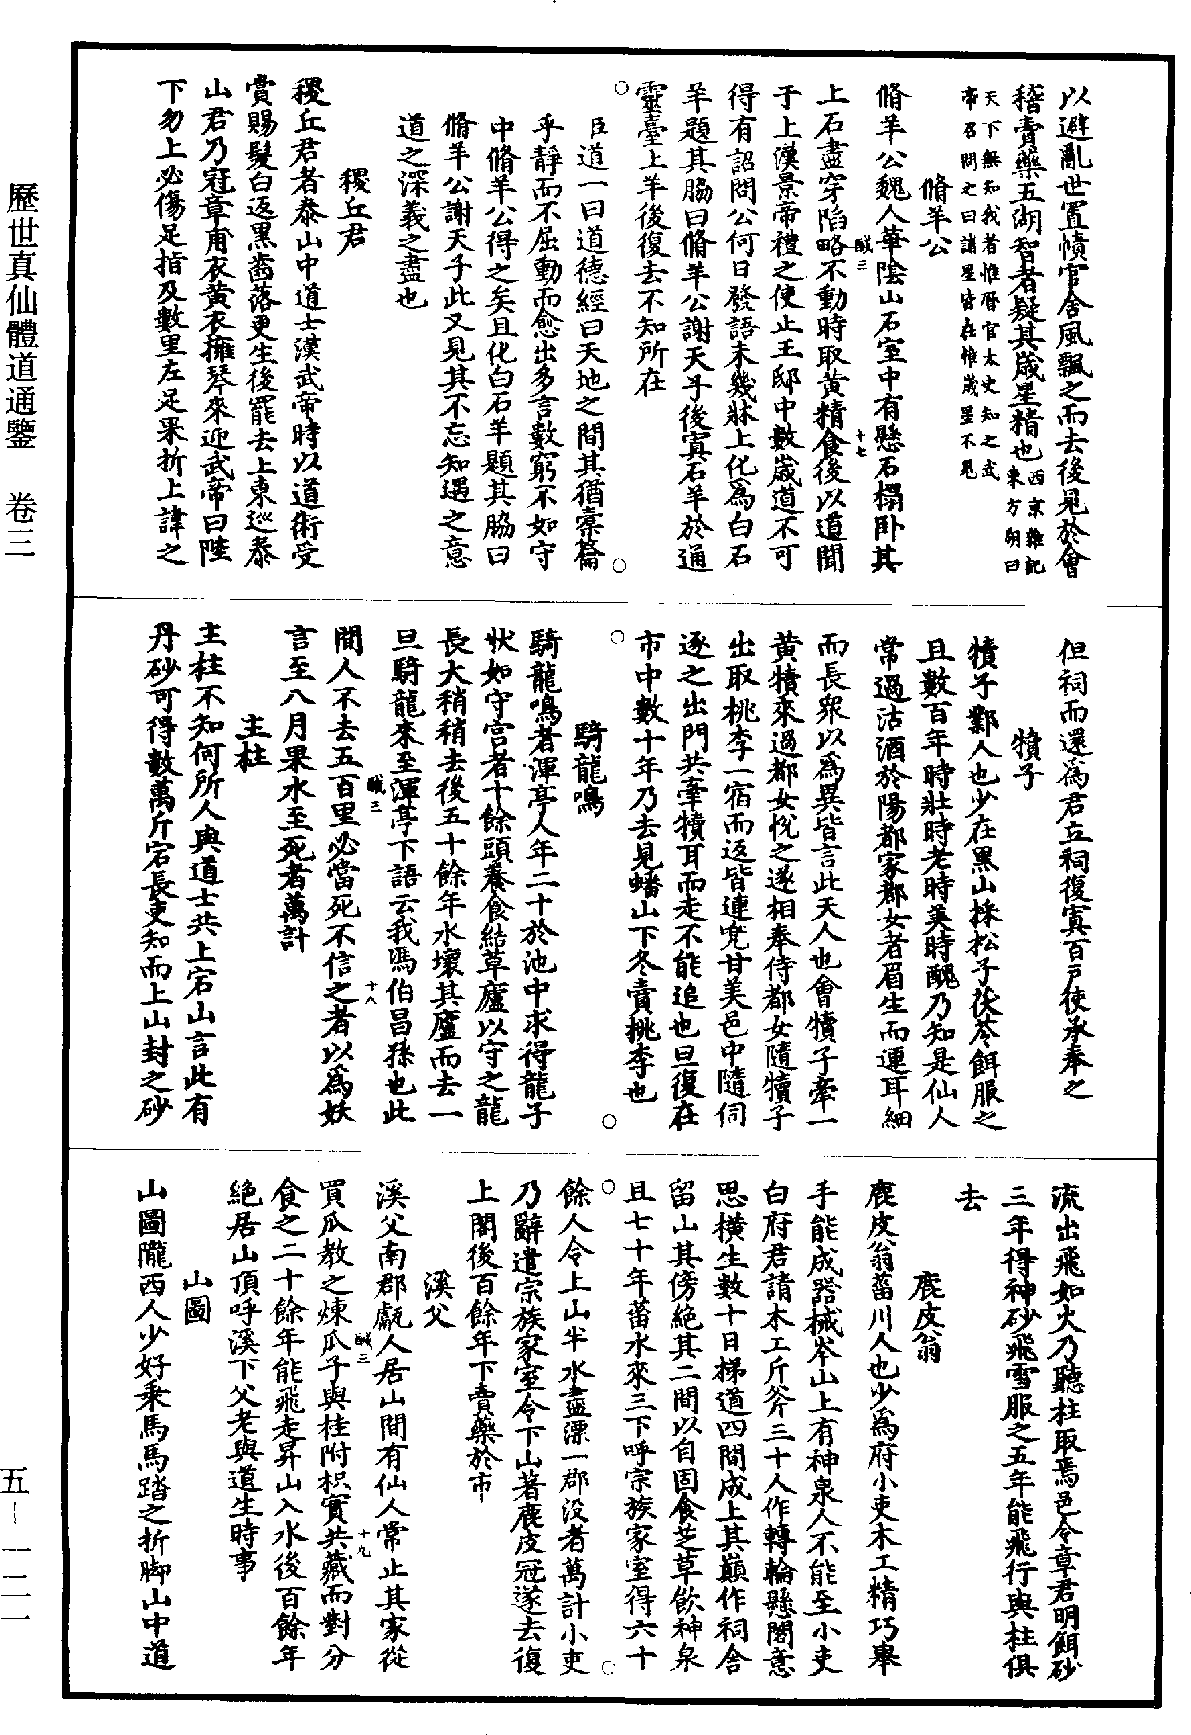 以避亂世置幘官舍風飄之而去後見於會
稽賣藥五湖智者疑其歲星精也西京雜記東方朔曰
天下無知我者惟曆官太史知之武帝召問之曰諸星皆在惟歲星不見
脩羊公
脩羊公魏人華陰山石室中有懸石榻卧其
上石盡穿陷略不動時取黃精食後以道聞
于上漢景帝禮之使止王邸中數歲道不可
得有詔問公何日發語未幾牀上化為白石
羊題其脇曰脩羊公謝天子後寘石羊於通
靈臺上羊後復去不知所在
臣道一曰道德經曰天地之間其猶橐籥
乎靜而不屈動而愈出多言數窮不如守
中脩羊公得之矣且化白石羊題其脇曰
脩羊公謝天子此又見其不忘知遇之意
道之深義之盡也
稷丘君
稷丘君者泰山中道士漢武帝時以道術受
賞賜髮白返黑齒落更生後罷去上東巡泰
山君乃冠章甫衣黃衣擁琴來迎武帝曰陛
下勿上必傷足指及數里左足果折上諱之
但祠而還為君立祠復寘百戶使承奉之
犢子
犢子鄴人也少在黑山採松子茯苓餌服之
且數百年時壯時老時美時醜乃知是仙人
常過沽酒於陽都家都女者眉生而連耳細
而長眾以為異皆言此天人也會犢子牽一
黃犢來過都女悅之遂相奉侍都女隨犢子
出取桃李一宿而返皆連兜甘美邑中隨伺
逐之出門共牽犢耳而走不能追也旦復在
市中數十年乃去見蟠山下冬賣桃李也
騎龍鳴
騎龍鳴者渾亭人年二十於池中求得龍子
狀如守宮者十餘頭養食結草廬以守之龍
長大稍稍去後五十餘年水壞其廬而去一
旦騎龍來至渾亭下語云我馮伯昌孫也此
間人不去五百里必當死不信之者以為妖
言至八月果水至死者萬計
主柱
主柱不知何所人與道士共上宕山言此有
丹砂可得數萬斤宕長吏知而上山封之砂
流出飛如火乃聽柱取焉邑令章君明餌砂
三年得神砂飛雪服之五年能飛行與柱俱
去
鹿皮翁
鹿皮翁菑川人也少為府小吏木工精巧舉
手能成器械岑山上有神泉人不能至小吏
白府君請木工斤斧三十人作轉輪懸閣意
思橫生數十日梯道四間成上其巔作祠舍
留山其傍絕其二間以自固食芝草飲神泉
且七十年菑水來三下呼宗族家室得六十
餘人令上山半水盡漂一郡沒者萬計小吏
乃辭遣宗族家室令下山著鹿皮冠遂去復
上閣後百餘年下賣藥於市
溪父
溪父南郡鄜人居山間有仙人常止其家從
買瓜教之煉瓜子與桂附枳實共藏而對分
食之二十餘年能飛走昇山入水後百餘年
絕居山頂呼溪下父老與道生時事
山圖
山圖隴西人少好乘馬馬踏之折脚山中道
歷世真仙體道通鑒 卷三
五-一二一